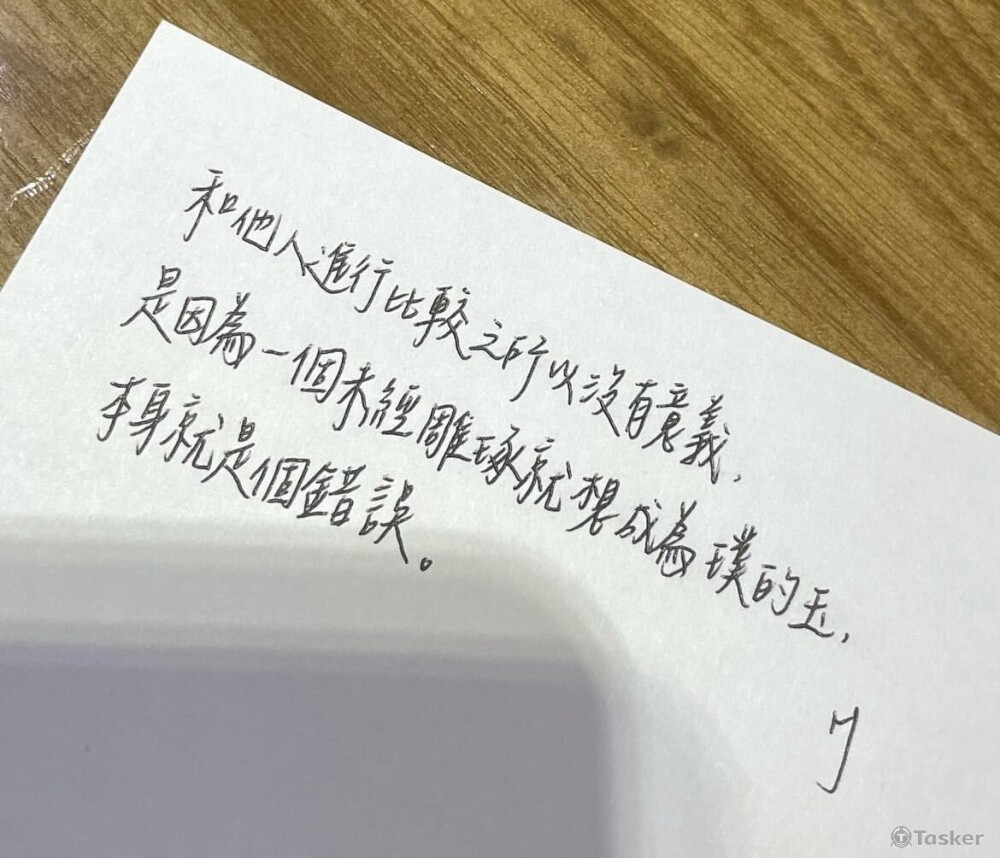 和他人進行比較之所以沒有意義,
是因為一個未經雕琢就想成為璞的玉,
本身就是個錯誤。
Tasker